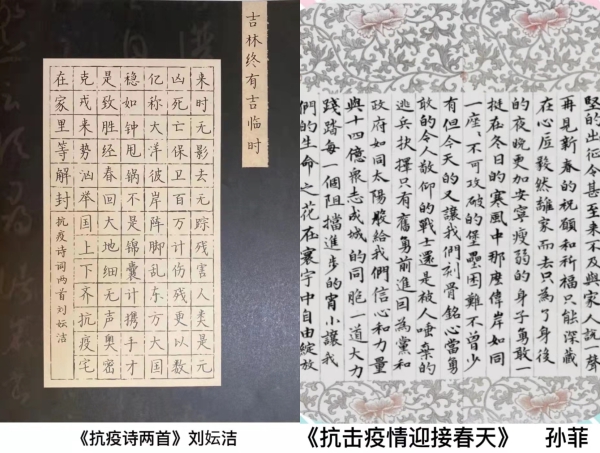 吉林终有吉临时
来时无影去无踪残害人类是元
凶死亡保卫百万计伤残更以数
亿称大洋彼岸阵脚乱东方大国
稳如钟甩锅不是锦囊计携手才
是致胜经春回大地细无声奥密
克戎来势汹举国上下齐抗疫宅
在家里等解封
抗疫诗词两首刘妘洁
堅的出征令甚至来不及與家人説聲
再見新春的祝願和祈福只能深藏
在心底毅然離家而去只為了身後
的夜晚更加安寧瘦弱的身子勇敢一
挺在冬日的寒風中那麽偉岸如同
一座、不可攻破的堡壘困難不曾少
有但今天的又讓我們刻骨銘心當勇
敢的令人敬仰的戰士還是被人唾棄的
逃兵抉擇只有奮勇前進回為黨和
政府如同太陽般給我們信心和力量
與十四億衆志成城的同胞一道大力
踐踏每一個阻擋進步的宵小讓我
們的生命之花在寰宇中自由綻放
《抗疫诗两首》刘妘洁
《抗击疫情迎接春天》 孙菲